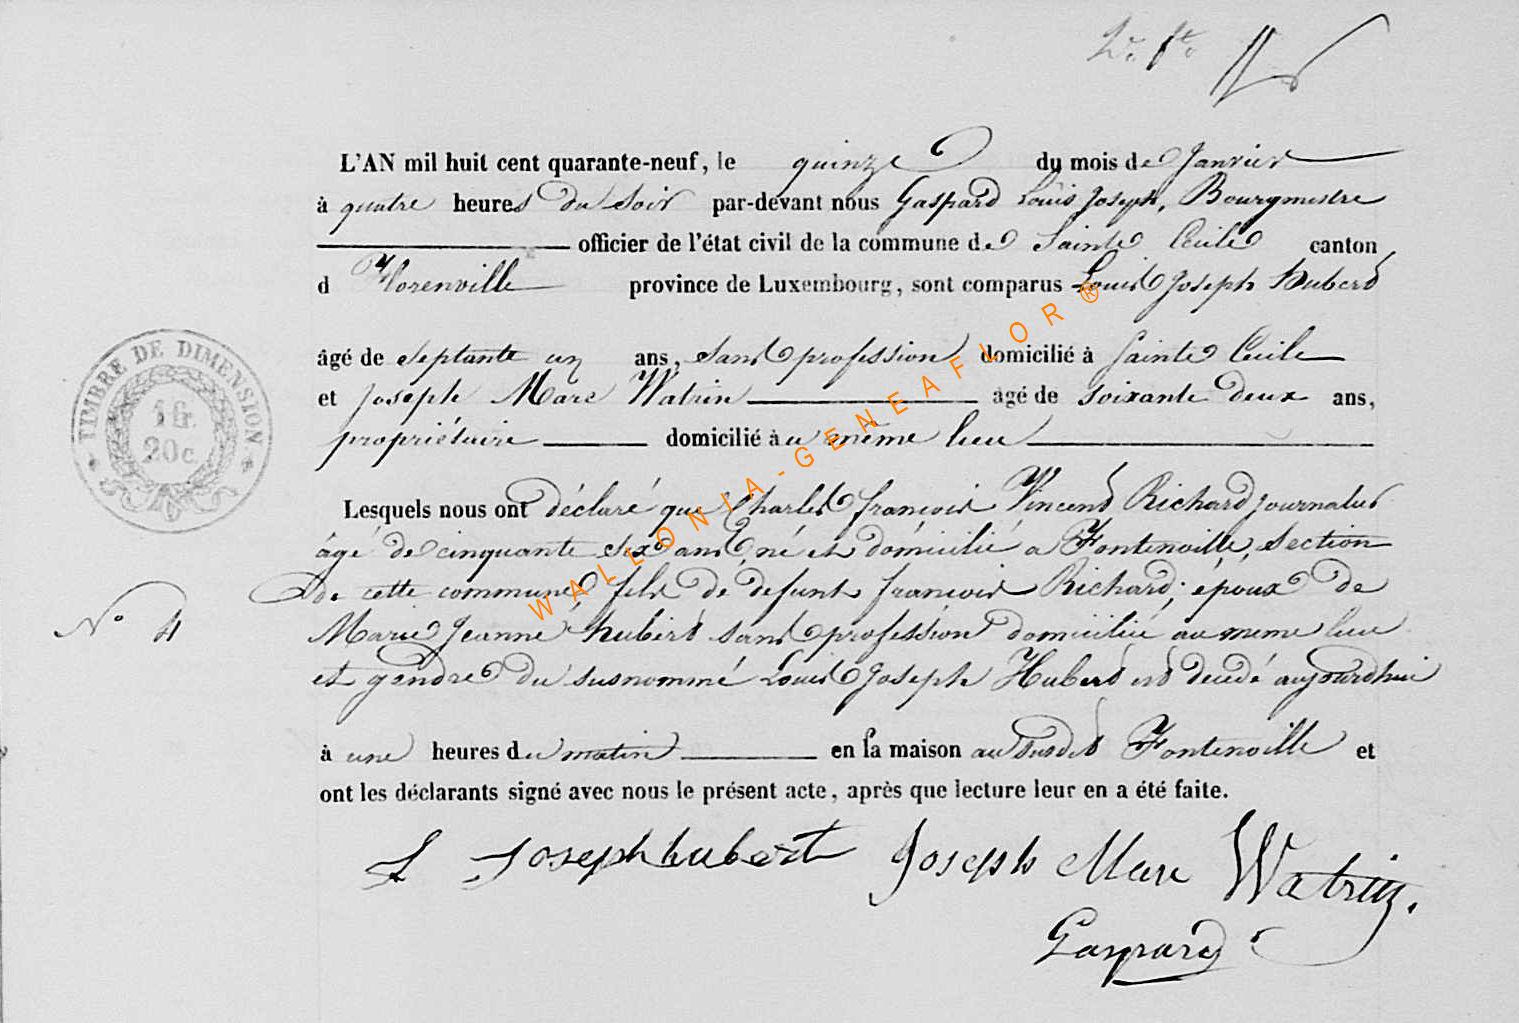 L'AN mil huit cent quarante-neuf, le quinze du mois de Janvier
à quatre heures du Soir par-devant nous Gaspard Louis Joseph, Bourgmestre
officier de l'état civil de la commune de Sainte Cecile canton
d Florenville province de Luxembourg, sont comparus Louis Joseph hubert
âgé de septante un ans, Sans profession domicilié à Sainte Cecile
et Joseph Marc Watrin âgé de soixante deux ans,
propriétaire domicilié au même lieu
TIMBRE DE DIMENSION
1 fr.
20 c.
Lesquels nous ont déclaré que Charles françois Vincent Richard journalier
âgé de cinquante six ans, né et domicilié a Fontenoille, Section
de cette commune fils de defunt françois Richard; époux de
N° 4
Marie Jeanne hubert sans profession domiciliée au meme lieu
et gendre du susnommé Louis Joseph Hubert est decedé aujourdhui
à une heures du matin en la maison au susdit Fontenoille et
ont les déclarants signé avec nous le présent acte, après que lecture leur en a été faite.
L Joseph hubert Joseph Marc Watrin.
Gaspard
WALLONIA-GENEAFLOR®